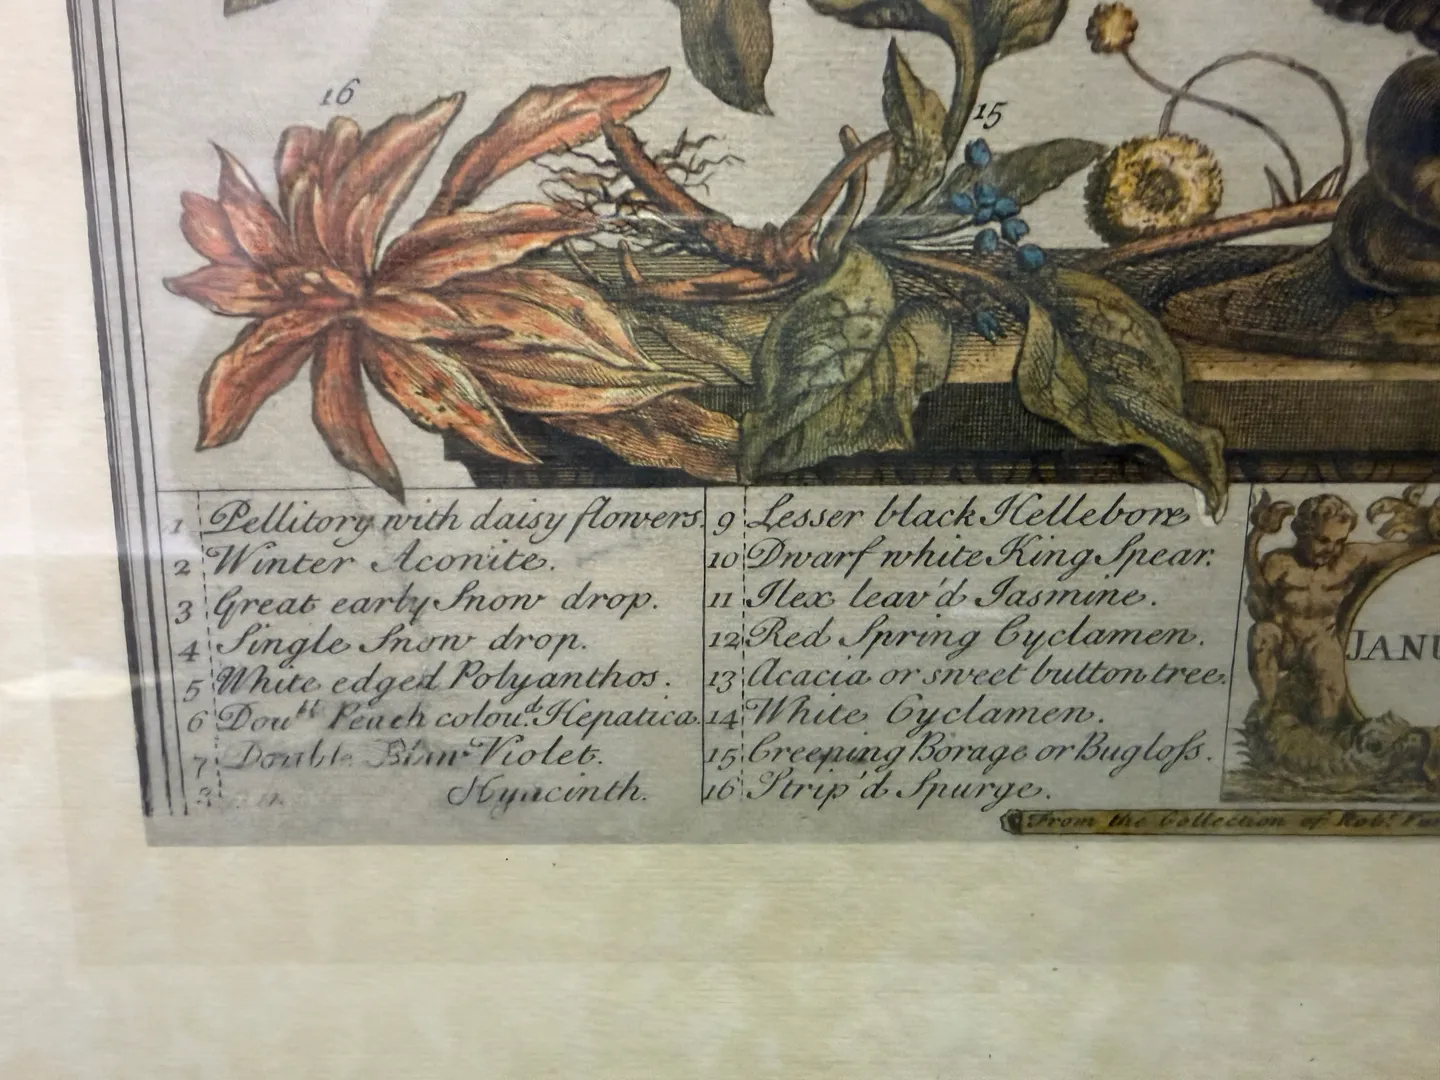 16
15
1 Pellitory with daisy flowers.
2 Winter Aconite.
3 Great early Snow drop.
4 Single Snow drop.
5 White edged Polyanthos.
6 Dou^bl Peach colou^d. Hepatica.
7 Double Blue Violet.
8 Hyacinth.
9 Lesser black Hellebore
10 Dwarf white King Spear.
11 Ilex leav'd Iasmine.
12 Red Spring Cyclamen.
13 Acacia or sweet button tree.
14 White Cyclamen.
15 Creeping Borage or Bugloſs.
16 Strip'd Spurge.
JANU
From the Collection of Rob^t.